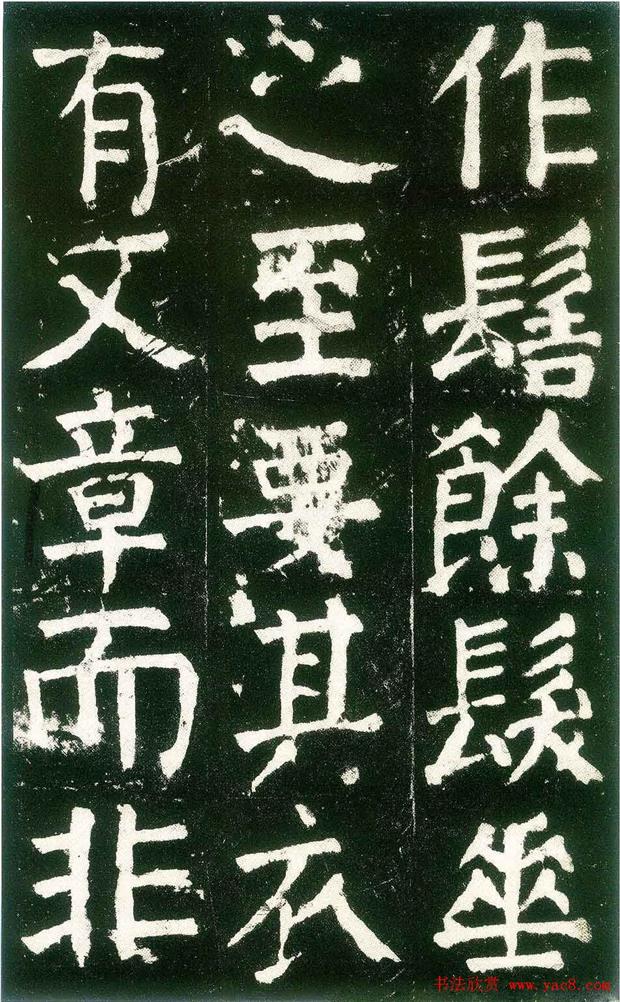 作髻餘髮垂
之至要其衣
有文章而非
书法欣赏 www.yac8.com